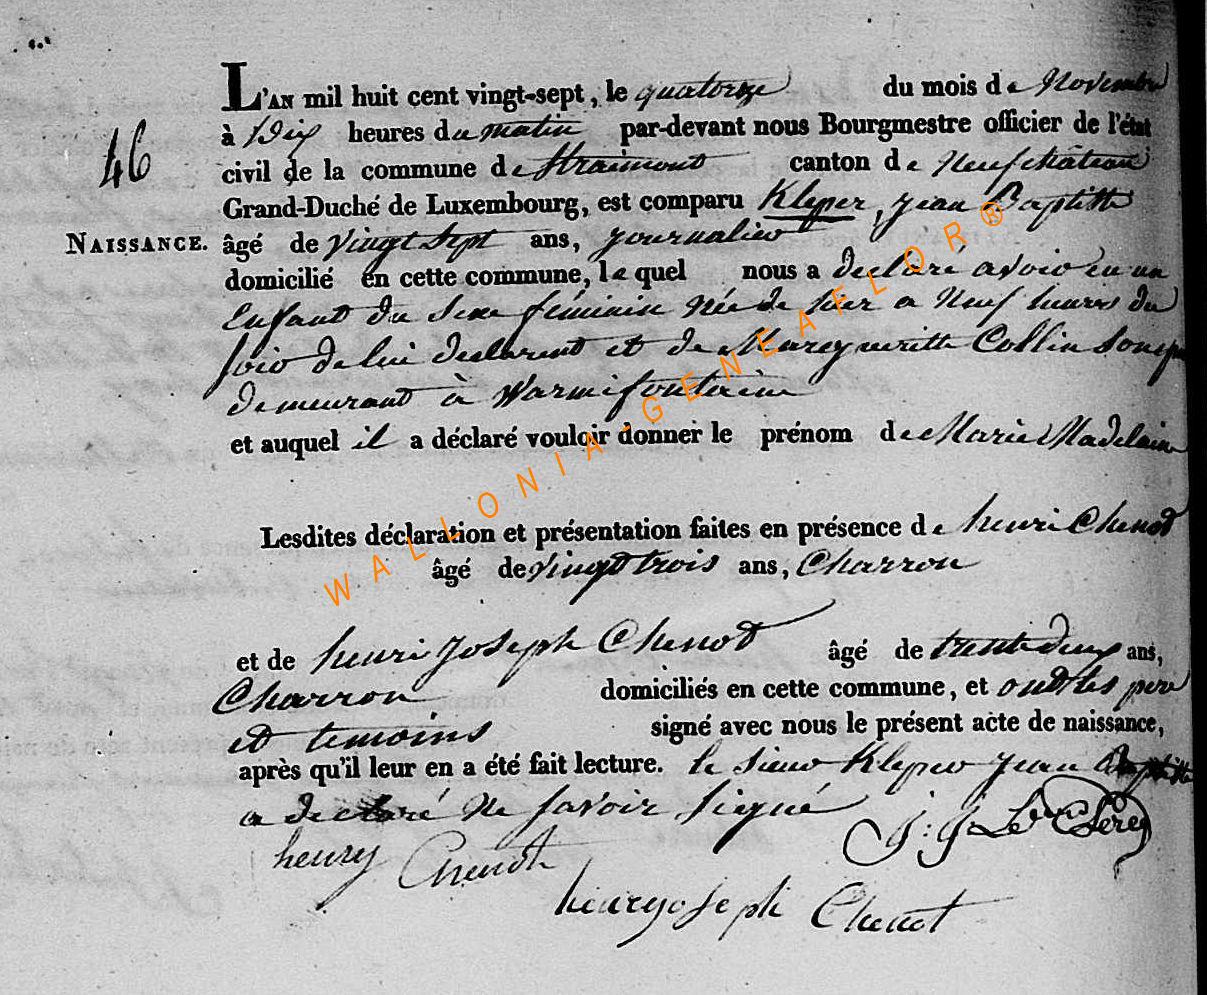 L'AN mil huit cent vingt-sept, le quatorze du mois de Novembre
46
à Dix heures du matin par-devant nous Bourgmestre officier de l'état
civil de la commune de Straimont canton de Neufchâteau
Grand-Duché de Luxembourg, est comparu Kleper, Jean Baptiste
NAISSANCE.
âgé de vingt sept ans, journalier
domicilié en cette commune, lequel nous a declaré avoir eu un
Enfant du Sexe féminin Née de hier a Neuf heures du
soir de lui declarent et de Margueritte Collin Son
demeurant à Warmifontaine
et auquel il a déclaré vouloir donner le prénom de Marie Madelaine
Lesdites déclaration et présentation faites en présence de henri Chenot
âgé de vingt trois ans, Charron
et de henri Joseph Chenot âgé de trente deux ans,
Charron domiciliés en cette commune, et ont les pere
et temoins signé avec nous le présent acte de naissance,
après qu'il leur en a été fait lecture. le sieur Kleper Jean Baptiste
a declaré ne savoir signé
henry Chenot
henry joseph Chenot
WALLONIA-GENEAFLOR®